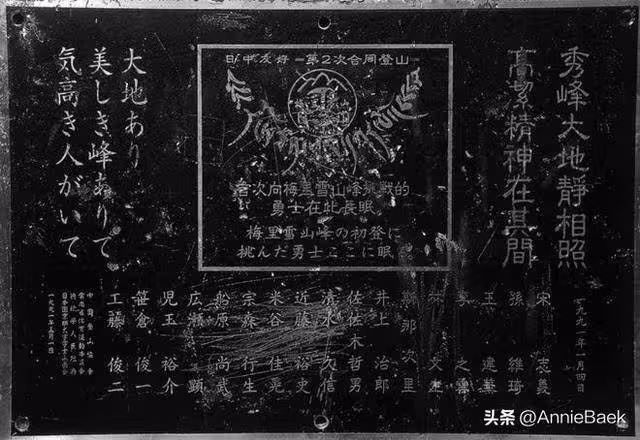 秀峰大地靜相照
高絜精神在其間
日中友好 第2次合同登山
首次向梅里雪山峰挑戦的
勇士在此長眠
梅里雪山峰の初登に
挑んだ勇士ここに眠
大地あり
美しき峰ありて
気高き人がいて
一九九一年一月四日
宋 志義
孫 維琦
王 建華
李 之雲
林 文生
斯那 次里
井上 治郎
佐佐木 哲男
清水 久信
近藤 裕史
米谷 佳晃
宗森 行生
船原 尚武
広瀬 顕
児玉 裕介
笹倉 俊一
工藤 俊二
中国登山協会
日本国京都大学学士山岳会
一九九一年五月一日
头条 @AnnieBaek